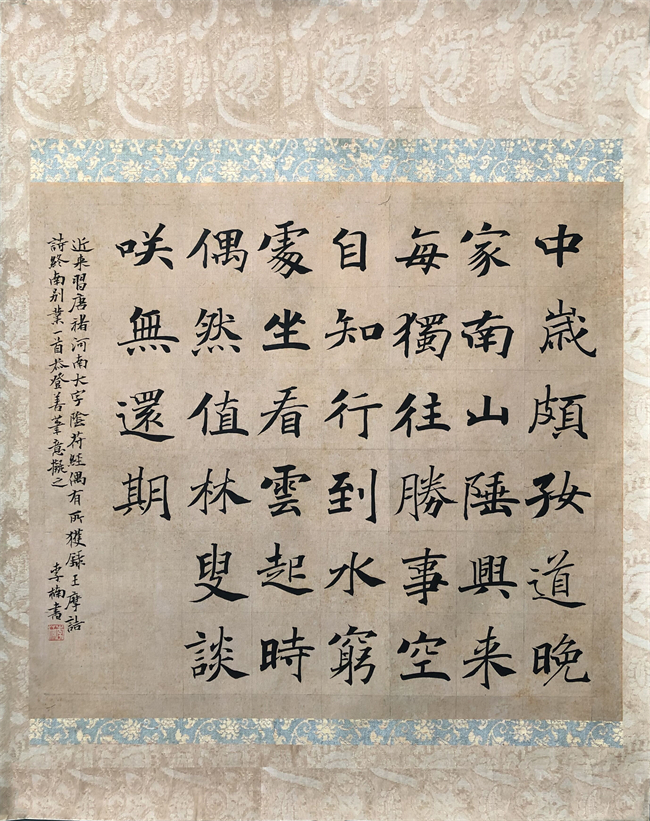 中歲頗好道晚
家南山陲興来
每獨往勝事空
自知行到水窮
處坐看雲起時
偶然值林叟談
咲無還期
近来習唐褚河南大字陰符經偶有所獲錄王摩詰
詩終南別業一首恭登善筆意擬之 李楠書